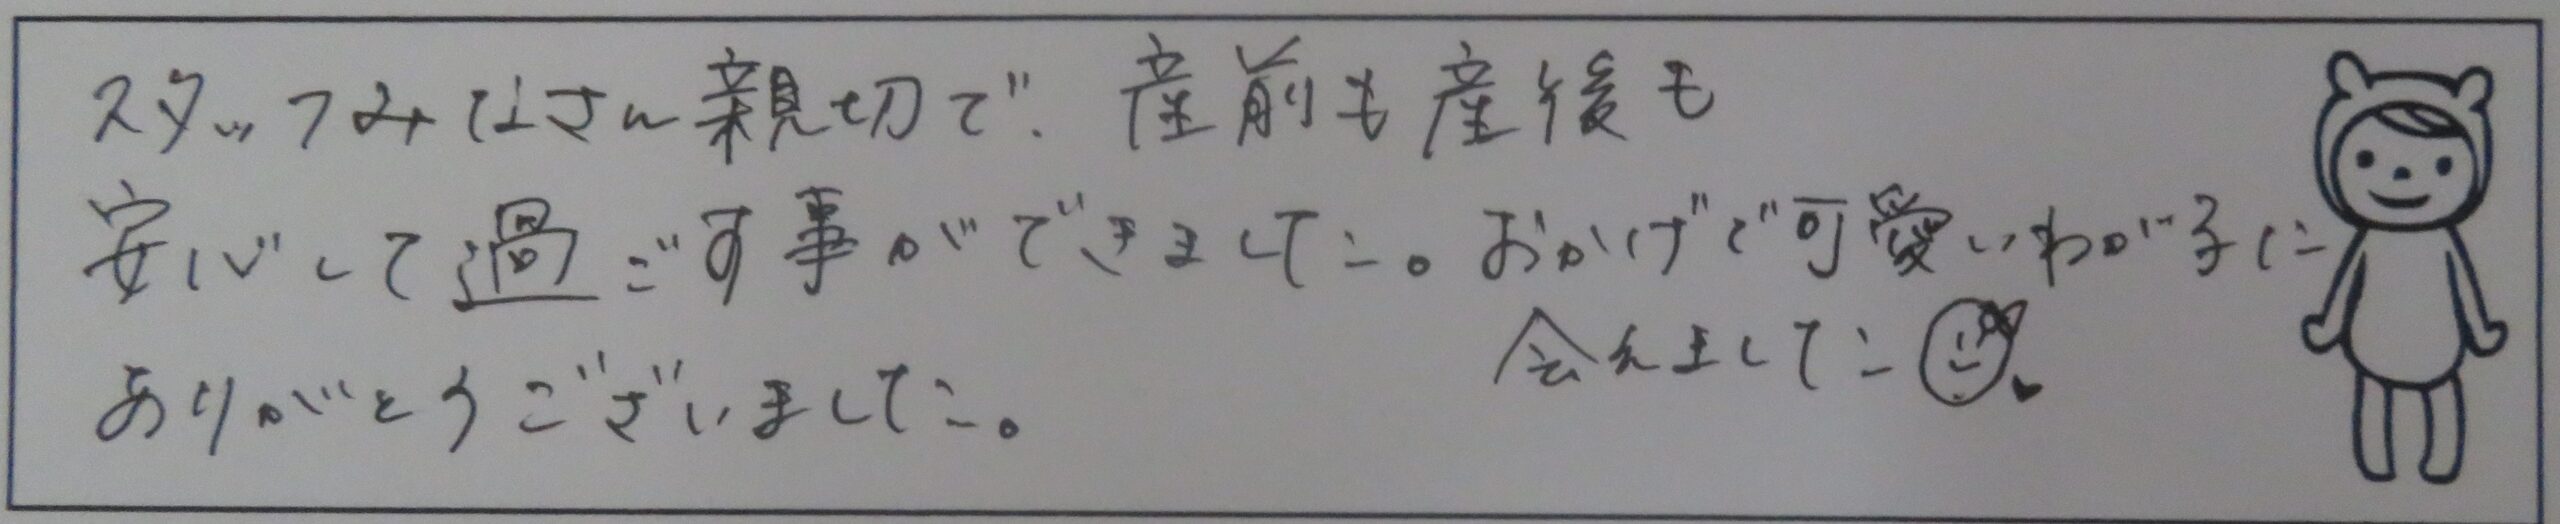 スタッフみなさん親切で、産前も産後も
安心して過ごす事ができました。おかげで可愛いわが子に
会えました
ありがとうございました。